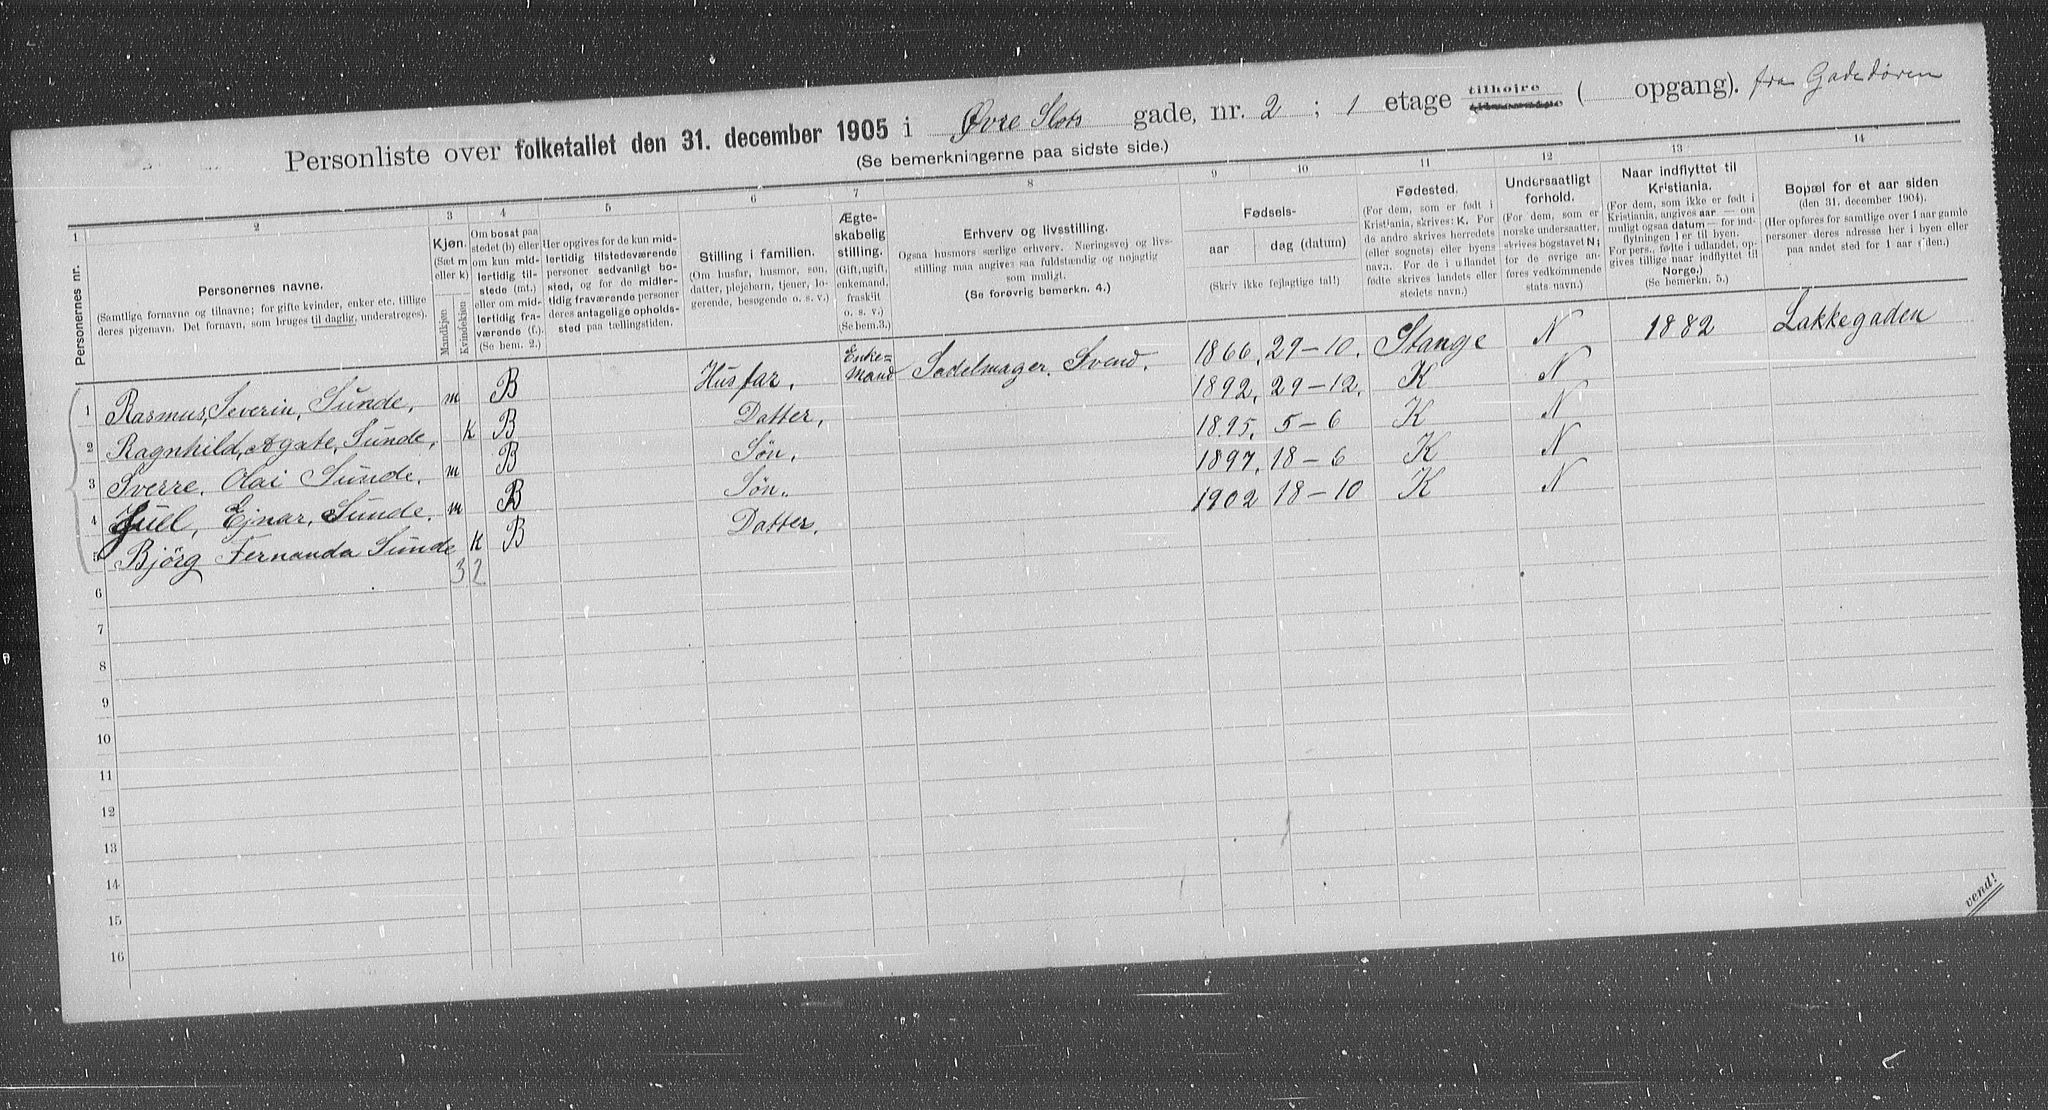 Personliste over folketallet den 31. december 1905 i Øvre Slots gade, nr. 2 ; 1 etage tilhøjre tilvenstre ( opgang). fra Gadedøren
(Se bemerkningerne paa sidste side.)
1 2 3 4 5 6 7 8 9 10 11 12 13 14
Personernes nr.
Personernes navne.
(Samtlige fornavne og tilnavne; for gifte kvinder, enker etc. tillige
deres pigenavn. Det fornavn, som bruges til daglig, understreges).
Kjøn.
(Sæt m
eller k)
Mandkjøn.
Kvindekjøn
Om bosat paa
stedet (b) eller
om kun mid-
lertidig til-
stede (mt.)
eller om mid-
lertidig fra-
værende (f.)
(Se bem. 2.)
Her opgives for de kun mid-
lertidig tilstedeværende
personer sedvanligt bo-
sted, og for de midler-
tidig fraværende personer
deres antagelige opholds-
sted paa tællingstiden.
Stilling i familien.
(Om husfar, husmor, søn,
datter, plejebarn, tjener, lo-
gerende, besøgende o. s. v.)
Ægte-
skabelig
stilling.
(Gift, ugift,
enkemand,
fraskilt
o. s. v.)
(Se bem. 3.)
Erhverv og livsstilling.
Ogsaa husmors særlige erhverv. Næringsvej og livs-
stilling maa angives saa fuldstændig og nøjagtig
som muligt.
(Se forøvrig bemerkn. 4.)
Fødsels-
aar dag (datum)
(Skriv ikke fejlagtige tal!)
Fødested.
(For dem, som er født i
Kristiania, skrives: K. For
de andre skrives herredets
(eller sognets) eller byens
navn. For de i udlandet
fødte skrives landets eller
stedets navn.)
Undersaatligt
forhold.
(For dem, som er
norske undersaatter,
skrives bogstavet N;
for de øvrige an-
føres vedkommende
stats navn.)
Naar indflyttet til
Kristiania.
(For dem, som ikke er født i
Kristiania, angives aar — om
muligt ogsaa datum — for ind-
flytningen i er til byen.
For pers., fødte i udlandet, op-
gives tillige naar indflyttet til
Norge.)
(Se bemerkn. 5.)
Bopæl for et aar siden
(den 31. december 1904).
(Her opføres for samtlige over 1 aar gamle
personer deres adresse her i byen eller
paa andet sted for 1 aar siden.)
1 Rasmus, Severin, Sunde, m B Husfar, Enke-mand Sadelmager. Svend. 1866, 29-10. Stange N 1882 Lakkegaden
2 Ragnhild, Agate, Sunde, K B Datter, 1892, 29-12. K N
3 Sverre, Olai Sunde, m B Søn, 1895, 5-6 K N
4 Juel, Ejnar, Sunde. m B Søn. 1897, 18-6 K N
5 Björg Fernanda Sunde K B Datter. 1902 18-10 K N
3 2
6
7
8
9
10
11
12
13
14
15
16
vend!